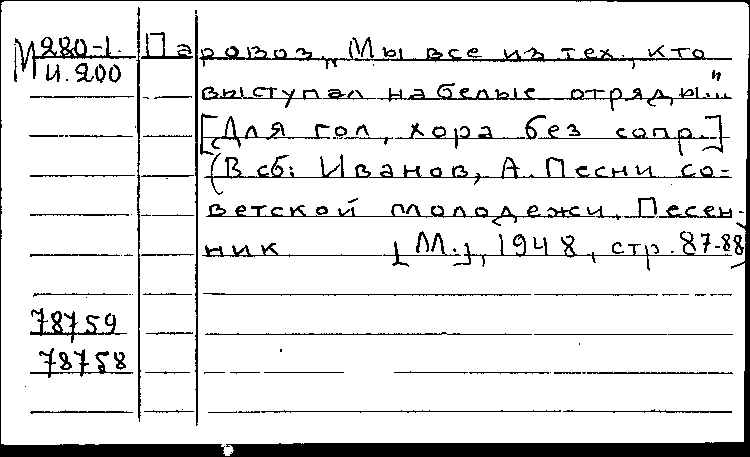 М 280-1. Паровоз „Мы все из тех, кто
И.200 выступал на белые отряды..."
[Для гол, хора без сопр.]
(В сб: Иванов, А. Песни со-
ветской молодежи. Песен-
ник [М.], 1948, стр. 87-88)
78759
78758